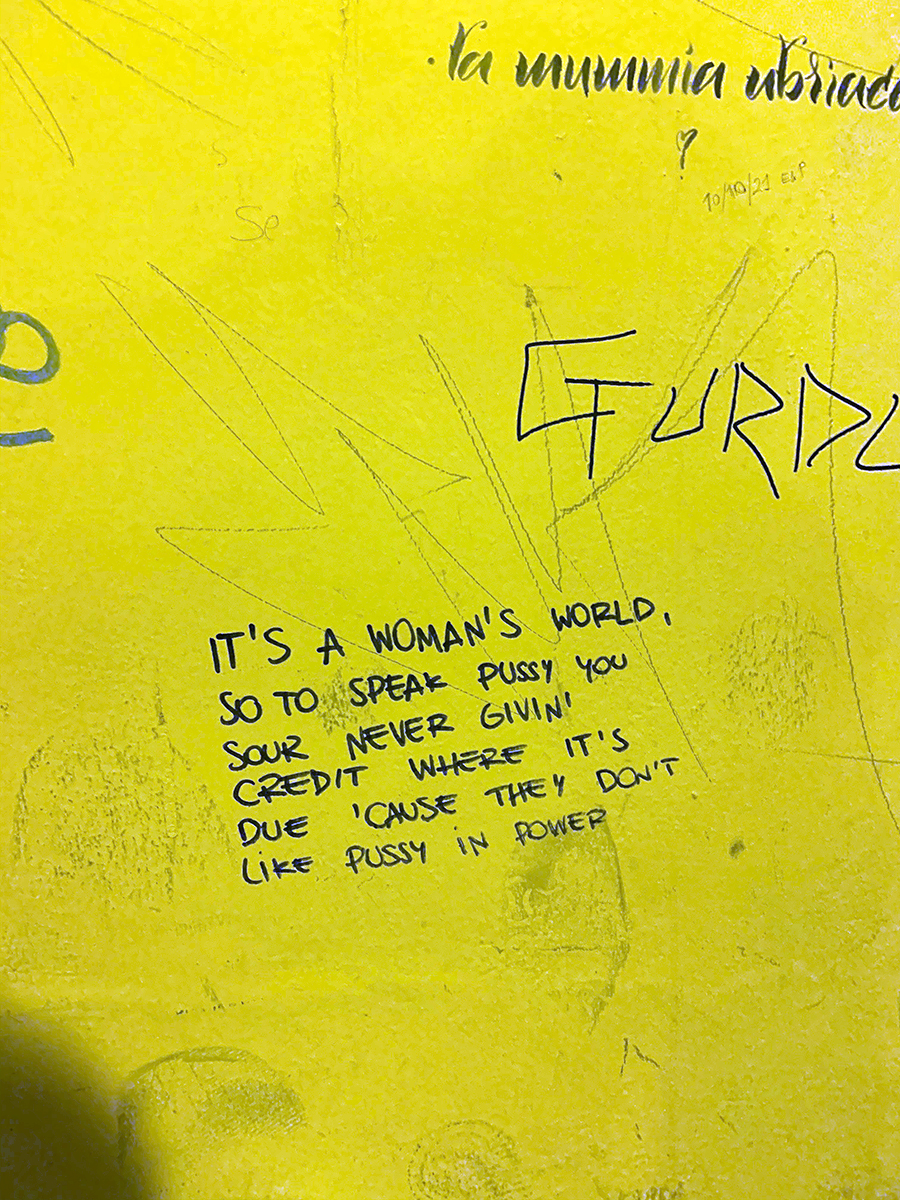 la mummia ubriaca
10/10/21 E&P
Se
GURDU
IT'S A WOMAN'S WORLD,
SO TO SPEAK PUSSY YOU
SOUR NEVER GIVIN'
CREDIT WHERE IT'S
DUE 'CAUSE THEY DON'T
LIKE PUSSY IN POWER